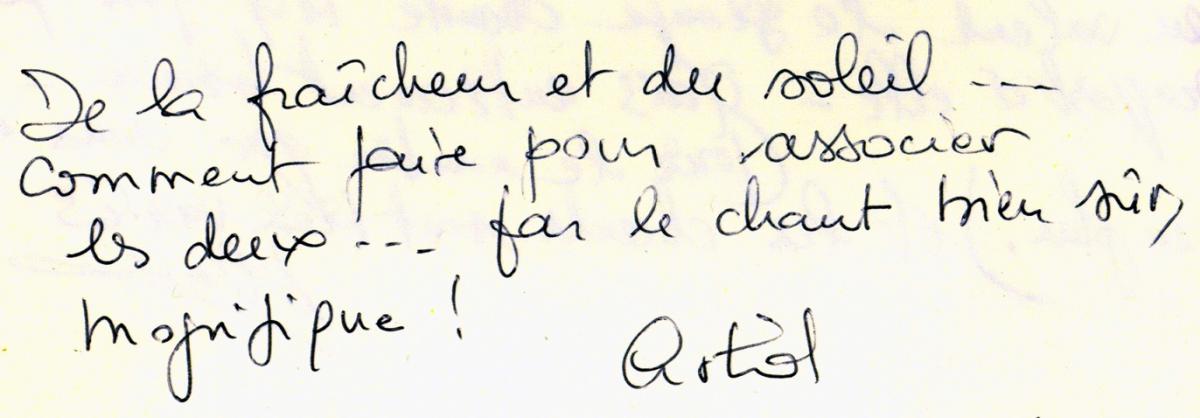 De la fraîcheur et du soleil ---
comment faire pour associer
les deux --- par le chant bien sûr,
magnifique !